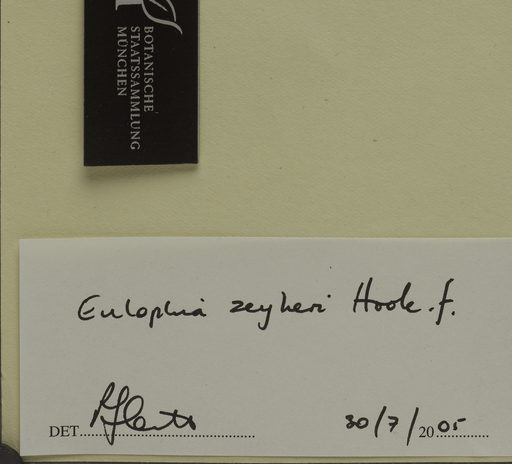 BOTANISCHE
STAATSSAMMLUNG
MÜNCHEN
Eulophia zeyheri Hook.f.
DET.
30/7/2005